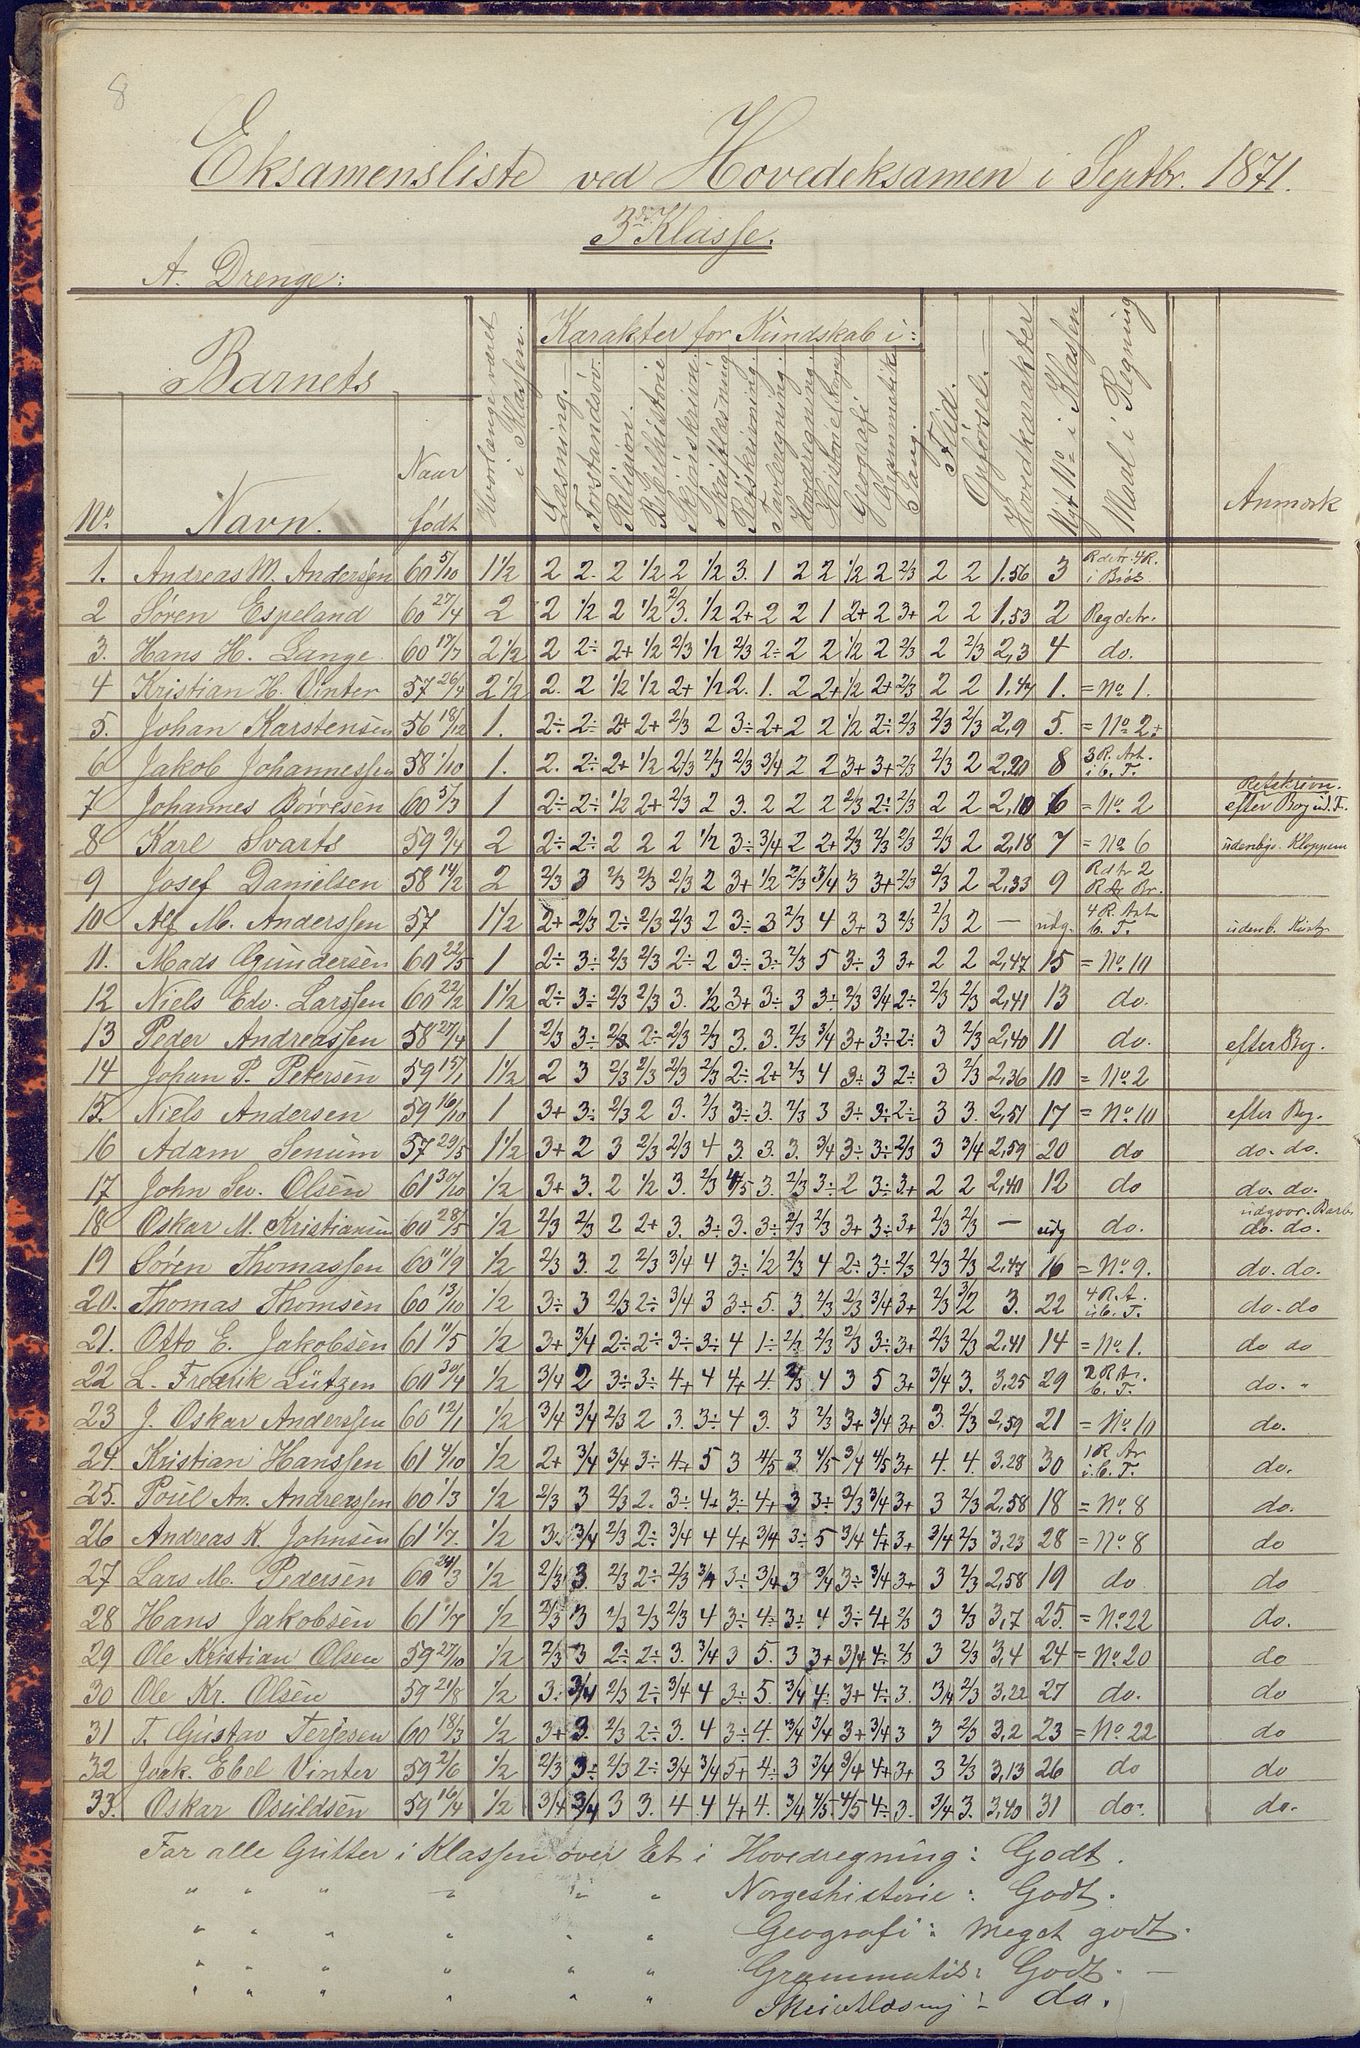 8
Eksamensliste ved Hovedeksamen i Septbr. 1871.
3die Klasse.
A. Drenge:
Barnets
Hvorlænge været i Klassen.
Karakter for Kundskab i:
No. Navn. Naar født
Læsning. Forstandsöv. Religion. Bibelhistorie Skjönskrivn. Skriftlæsning Retskrivning. Tavleregning. Hovedregning. Historie (Norges) Geografi Grammatik Sang.
Flid. Opførsel. Hovedkarakter Nyt No i Klassen Maal i Regning Anmærk
1. Andreas M. Andersen 60 5/10 1 1/2 2 2. 2 1/2 2 1/2 3. 1 2 2 1/2 2 2/3 2 2 1.56 3
2 Søren Espeland 60 27/4 2 2 1/2 2 1/2 2/3. 1/2 2+ 2 2 1 2+ 2 3+ 2 2 1.53 2 Regdetr.
3. Hans H. Lange 60 17/7 2 1/2 2 2÷ 2+ 1/2 2/3 1/2 2/3 2÷ 2 2 1/2 2 2/3 2 2/3 2,3 4 do.
4 Kristian H. Vinter 57 26/4 2 1/2 2. 2 1/2 1/2 2+ 1/2 2. 1. 2 2+ 1/2 2+ 2/3 2 2 1.47 1. = No 1.
5. Johan Karstensen 56 18/12 1. 2÷ 2÷ 2+ 2+ 2/3 2 3÷ 2+ 2 2 1/2 2÷ 2/3 2/3 2/3 2,9 5. = No 2+
6 Jakob Johannessen 58 1/10 1. 2. 2÷ 2+ 1/2 2/3 2/3 2/3 3/4 2 2 3+ 3+ 2/3 2/3 2 2,20 8 3 R. Art. i b. T.
Retskrivn.
7 Johannes Börresen 60 5/3 1 2÷ 2÷ 1/2 2+ 2/3 2 3. 2 2 2 2/3 2÷ 2/3 2 2 2,10 6 = No 2 efter Bog u. T.
8 Karl Svarts 59 9/4 2 2÷ 2÷ 2 2 2 1/2 3÷ 3/4 2 2+ 2/3 2/3 2/3 2/3 2 2,18 7 = No 6
9 Josef Danielsen 58 14/2 2 2/3 3 2/3 2/3 2/3 2 3+ 1/2 2/3 3/4 3 3+ 2/3 2/3 2 2,33 9
10 Alf M. Anderssen 57 1 1/2 2+ 2/3 2÷ 2/3 2/3 2 3÷ 3 2/3 4 3+ 3 2/3 2/3 2 — udg. 4 R. Art b. T.
11. Mads Gundersen 60 22/5 1 2÷ 3÷ 2/3 2/3 2÷ 2 3÷ 3÷ 2/3 5 3÷ 3 3+ 2 2 2,47 15 = No 10
12 Niels Edv. Larssen 60 22/2 1 1/2 2÷ 3÷ 2/3 2/3 3. 1/2 3+ 3÷ 3 3÷ 2/3 3/4 2÷ 2/3 2/3 2,41 13 do.
13 Peder Andreassen 58 27/4 1 2/3 3÷ 2/3 2÷ 2/3 2/3 3. 3. 2/3 3/4 3+ 3÷ 2÷ 3 2/3 2,40 11 do. efter Bog.
14 Johan P. Petersen 59 15/1 1 1/2 2 3 2/3 2/3 2/3 2/3 2÷ 2+ 2/3 4 3÷ 3 2÷ 3 2/3 2,36 10 = No 2
15. Niels Andersen 59 16/10 1 3+ 3÷ 2/3 2 3. 2/3 3÷ 3. 2/3 3 3÷ 3÷ 2÷ 3 3. 2,51 17 = No 10 efter Bog.
16 Adam Senum 57 29/5 1 1/2 3+ 2 3 2/3 2/3 4 3. 3. 3. 3/4 3÷ 3÷ 2/3 3 3/4 2,59 20 do do. do.
17 John Sev. Olsen 61 30/10 1/2 3+ 3. 2 1/2 3. 2/3 4/5 3. 2/3 3÷ 2 3÷ 3+ 2 2 2,40 12 do do. do.
18 Oskar M. Kristiansen 60 28/5 1/2 2/3 2/3 2 2+ 3. 3÷ 3. 3÷ 2/3 2/3 3+ 3÷ 3+ 2/3 2/3 — udg do. do. do.
19 Søren Thomassen 60 11/9 1/2 2/3 3. 2 2/3 3/4 4 3÷ 1/2 2/3 4 2÷ 3÷ 2/3 2/3 2/3 2,47 16 = No 9. do. do.
20. Thomas Thomsen 60 13/10 1/2 3÷ 3 2/3 2÷ 3/4 3 3÷ 5. 3 2/3 2/3 3/4 3+ 2/3 3/2 3. 22 4 R. A. i b. T. do. do
21. Otto E. Jakobsen 61 11/5 1/2 3+ 3/4 2÷ 2÷ 3÷ 3÷ 4 1÷ 2/3 2/3 2/3 3÷ 3+ 2/3 2/3 2,41 14 = No 1. do do
22 L. Fredrik Lützen 60 30/4 1/2 3/4 2 3÷ 3÷ 4+ 4 4+ 4. 2/3 4 3 5 3+ 3/4 3. 3,25 29 2 R Ar. b. T. do. "
23 J. Oskar Anderssen 60 12/1 1/2 3/4 3/4 2/3 2 3. 3÷ 4 3. 3 2/3 3+ 3/4 3+ 3. 2/3 2,59 21 = No 10 do.
24 Kristian Hanssen 61 4/10 1/2 2+ 3/4 3/4 3÷ 4+ 5 3 4/5 3 4/5 3/4 4/5 3+ 4. 4. 3.28 30 1 R. Ar i. b. T. do.
25. Poul An. Andreassen 60 1/3 1/2 2/3 3 2/3 2. 3÷ 4+ 3÷ 4+ 3 3÷ 2/3 3/4 3+ 3 2/3 2,58 18 = No 8 do.
26 Andreas K. Johnsen 61 1/7. 1/2 3. 3/4 2/3 2÷ 3/4 4 4+ 3/4 3÷ 5 3/4 4+ 3+ 3/4 2/3 3,23 28 = No 8 do
27 Lars M. Pedersen 60 24/3 1/2 2/3 3. 2/3 2÷ 2/3 3/4 3÷ 3/4 3 3/4 3÷ 3/4 3+ 3 2/3 2,58 19 do do
28 Hans Jakobsen 61 1/7 1/2 2/3 3 2/3 2/3 2/3 4 3÷ 4÷ 3÷ 4 3÷ 4+ 2/3 3 2/3 3,7 25. = No 22 do.
29 Ole Kristian Olsen 59 27/10 1/2 2/3 3 2÷ 2÷ 3. 3/4 3 5. 3 3+ 3/4 4÷ 2/3 3 2/3 3,4 24 = No 20 do
30 Ole Kr. Olsen 59 21/8 1/2 3÷ 3/4 2/3 2÷ 3/4 4 3÷ 5. 3/4 4÷ 3+ 4÷ 3. 3/4 2/3 3,22 27 do. do
31 T. Gustav Terjesen 60 18/3 1/2 3+ 3. 2/3 2÷ 3. 4 3÷ 4. 3/4 3/4 3+ 3/4 3 3 2/3 3,2 23 = No 22 do
32 Joak. Ebel Vinter 59 2/6 1/2 2/3 3÷ 2/3 2÷ 3/4 3/4 5+ 4÷ 3 3/4 3/4 4+ 3+ 3 2/3 3,13 26 do do
33. Oskar Osuldsen 59 16/4 1/2 3/4 3/4 3 3. 4 4 4+ 4. 3/4 4/5 4/5 4÷ 3. 3/4 3. 3,40 31 do. do.
Far alle Gutter i Klassen over Et i Hovedregning: Godt.
" " " " " " Norgeshistorie: Godt.
" " " " " " Geografi: Meget godt.
" " " " " " Grammatik: Godt. —
" " " " " " Skriftlæsning: do.